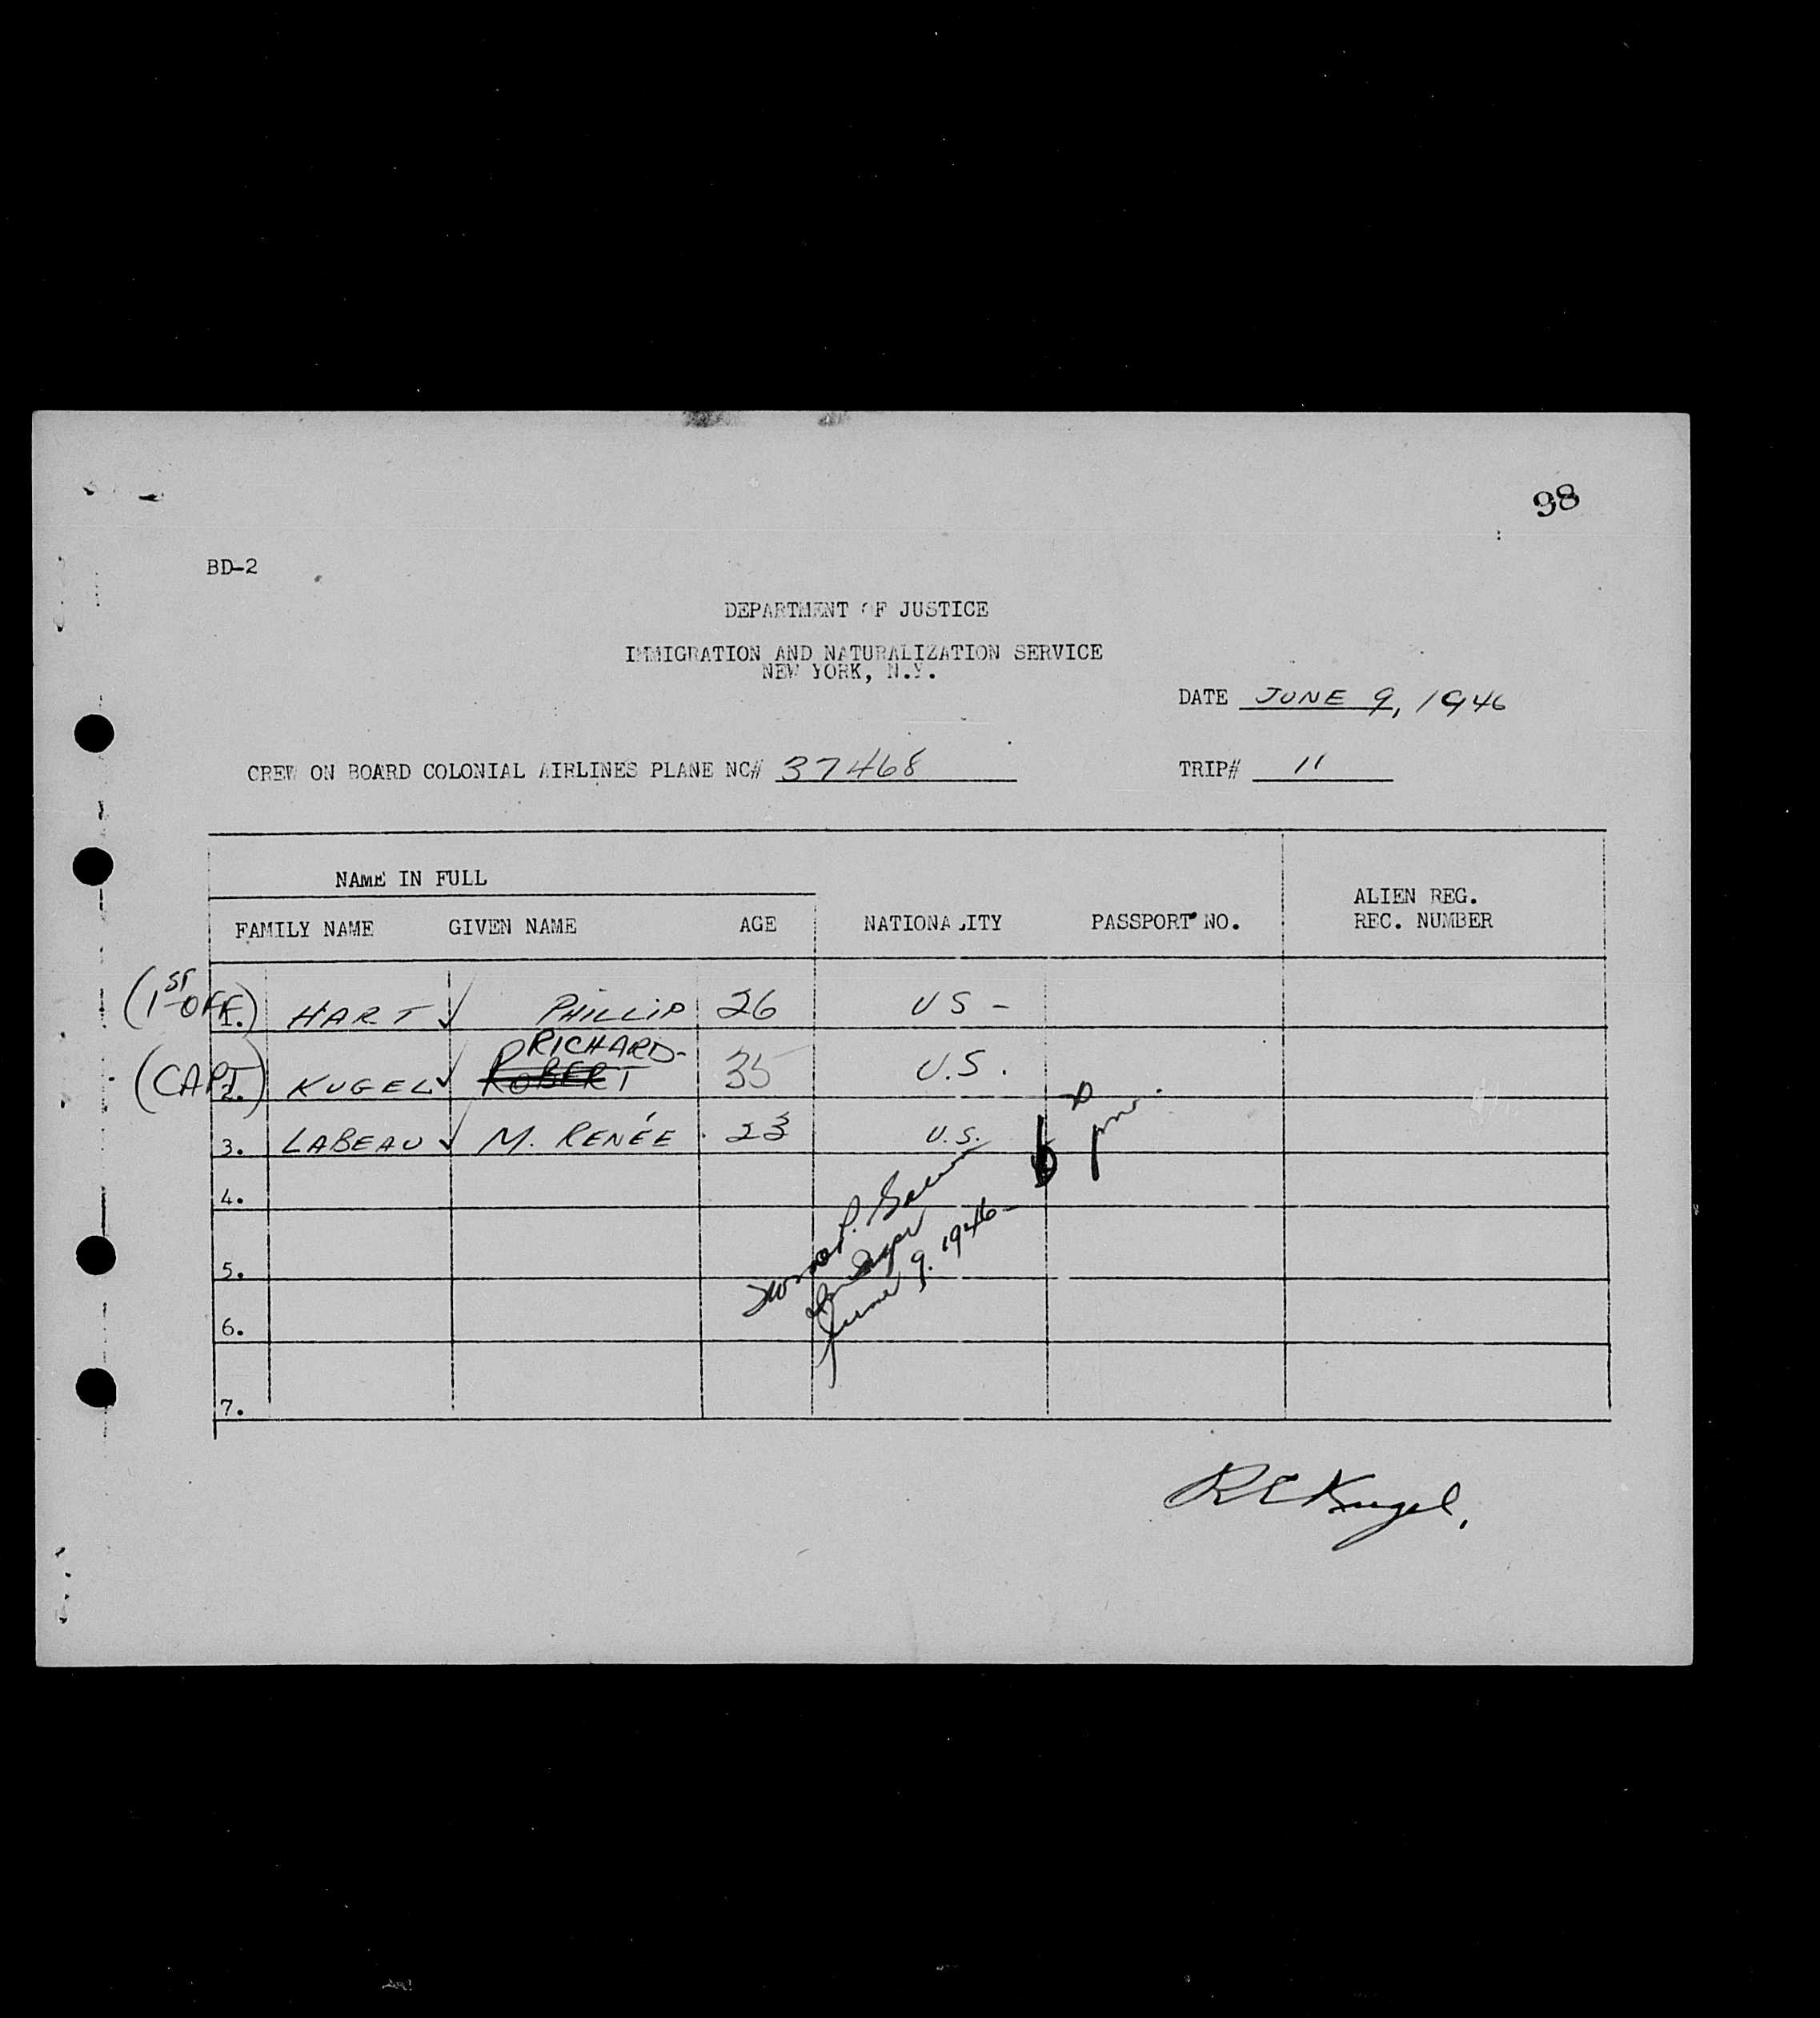 98
BD-2
DEPARTMENT OF JUSTICE
IMMIGRATION AND NATURALIZATION SERVICE
NEW YORK, N.Y.
DATE JUNE 9, 1946
CREW ON BOARD COLONIAL AIRLINES PLANE NC# 37468 TRIP# 11
NAME IN FULL
FAMILY NAME GIVEN NAME AGE NATIONALITY PASSPORT NO. ALIEN REG. REC. NUMBER
(1ST OFF.) 1. HART ✓ PHILLIP 26 US -
RICHARD-
(CAPT.) 2. KUGEL ✓ ROBERT 35 U.S.
3. LABEAU ✓ M. RENÉE 23 U.S.
6 pm.
4.
5.
June 9. 1946
6.
7.
R E Kugel.